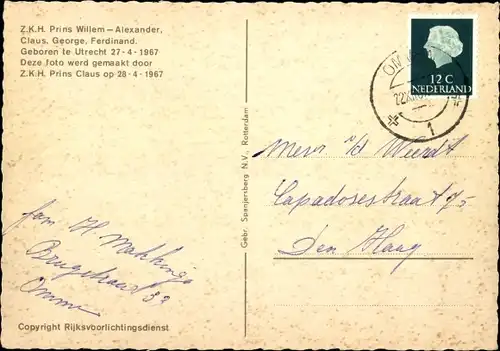 Z.K.H. Prins Willem – Alexander,
Claus, George, Ferdinand.
Geboren te Utrecht 27-4-1967
Deze foto werd gemaakt door
Z.K.H. Prins Claus op 28-4-1967
12 C
NEDERLAND
OM
22 XII
1
Mevr v/d Weerdt
Capadosestraat
Den Haag
fam H. Makkinga
Brugstraat 32
Ommen
Gebr. Spanjersberg N.V., Rotterdam
Copyright Rijksvoorlichtingsdienst